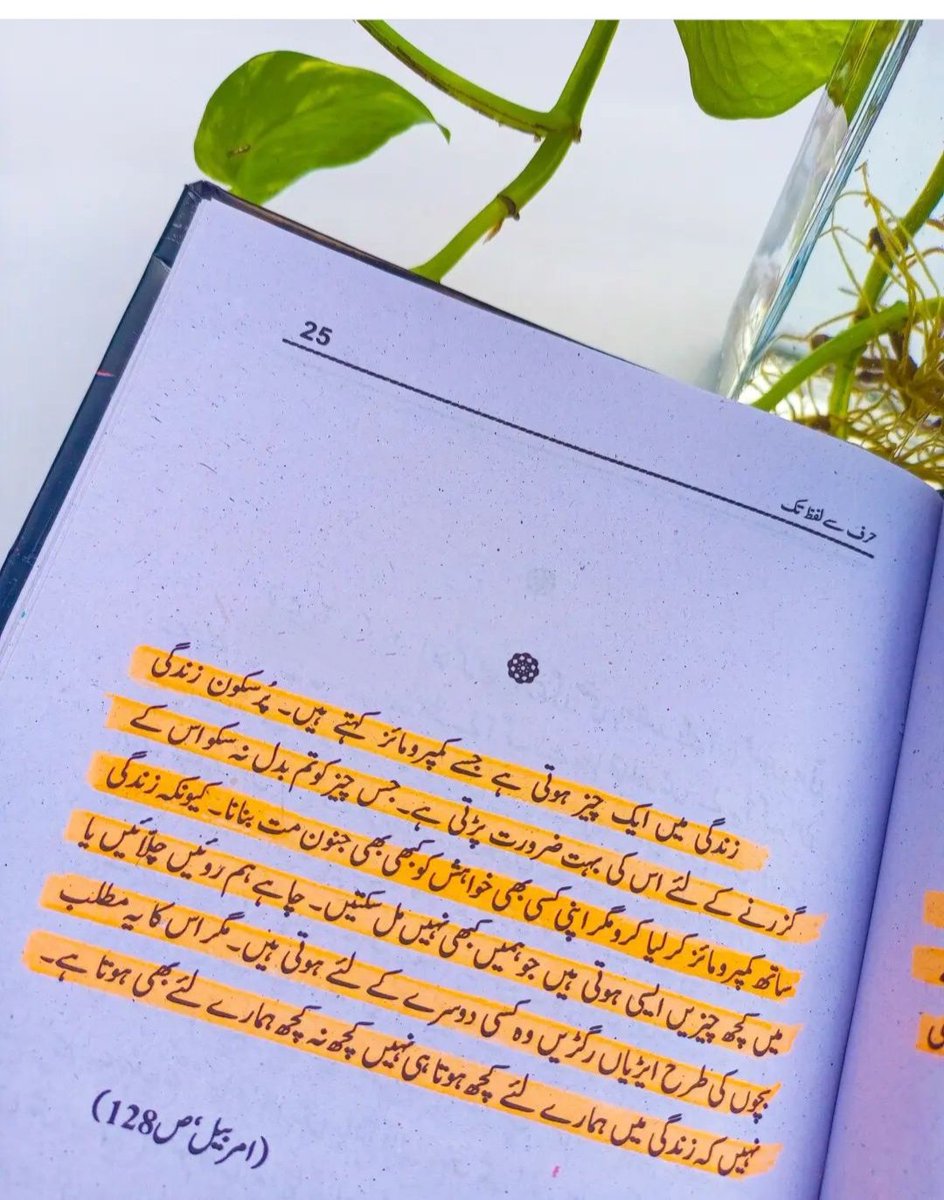 25
حرف سے لفظ تک
زندگی میں ایک چیز ہوتی ہے جسے کمپرومائز کہتے ہیں۔ پُرسکون زندگی
گزرنے کے لئے اس کی بہت ضرورت پڑتی ہے۔ جس چیز کو تم بدل نہ سکو اس کے
ساتھ کمپرومائز کر لیا کرو مگر اپنی کسی بھی خواہش کو کبھی بھی جنون مت بنانا۔ کیونکہ زندگی
میں کچھ چیزیں ایسی ہوتی ہیں جو ہمیں کبھی نہیں مل سکتیں۔ چاہے ہم روئیں چلّائیں یا
بچوں کی طرح ایڑیاں رگڑیں وہ کسی دوسرے کے لئے ہوتی ہیں۔ مگر اس کا یہ مطلب
نہیں کہ زندگی میں ہمارے لئے کچھ ہوتا ہی نہیں کچھ نہ کچھ ہمارے لئے بھی ہوتا ہے۔
(امربیل، ص128)